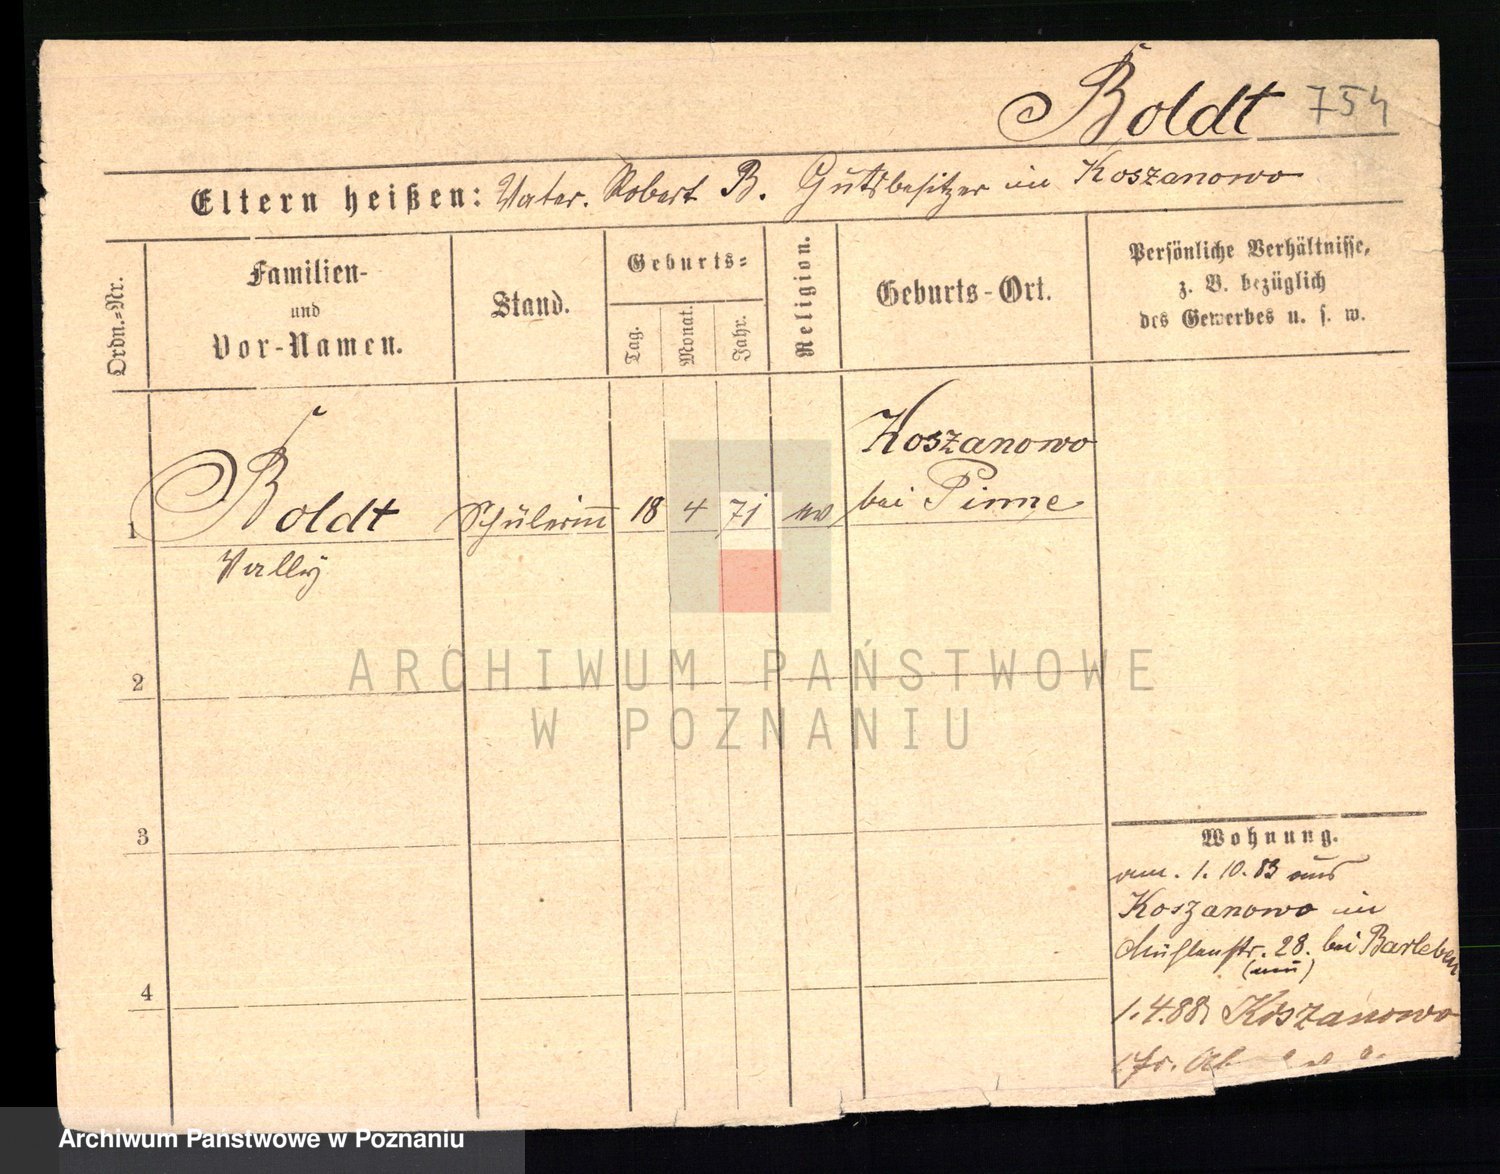 Boldt 754
Eltern heißen: Vater. Robert B. Gutsbesitzer in Koszanowo
Ordn.-Nr.
Familien-
und
Vor-Namen.
Stand.
Geburts-
Tag.
Monat.
Jahr.
Religion.
Geburts-Ort.
Persönliche Verhältnisse,
z. B. bezüglich
des Gewerbes u. s. w.
1 Boldt Schülerin 18 4 71 ev Koszanowo
bei Pinne
Vally
2
3
4
ARCHIWUM PAŃSTWOWE
W POZNANIU
Wohnung.
am. 1. 10. 83 aus
Koszanowo in
Mühlenstr. 28. bei Barleben
(neu)
1.4.88 Koszanowo
Archiwum Państwowe w Poznaniu